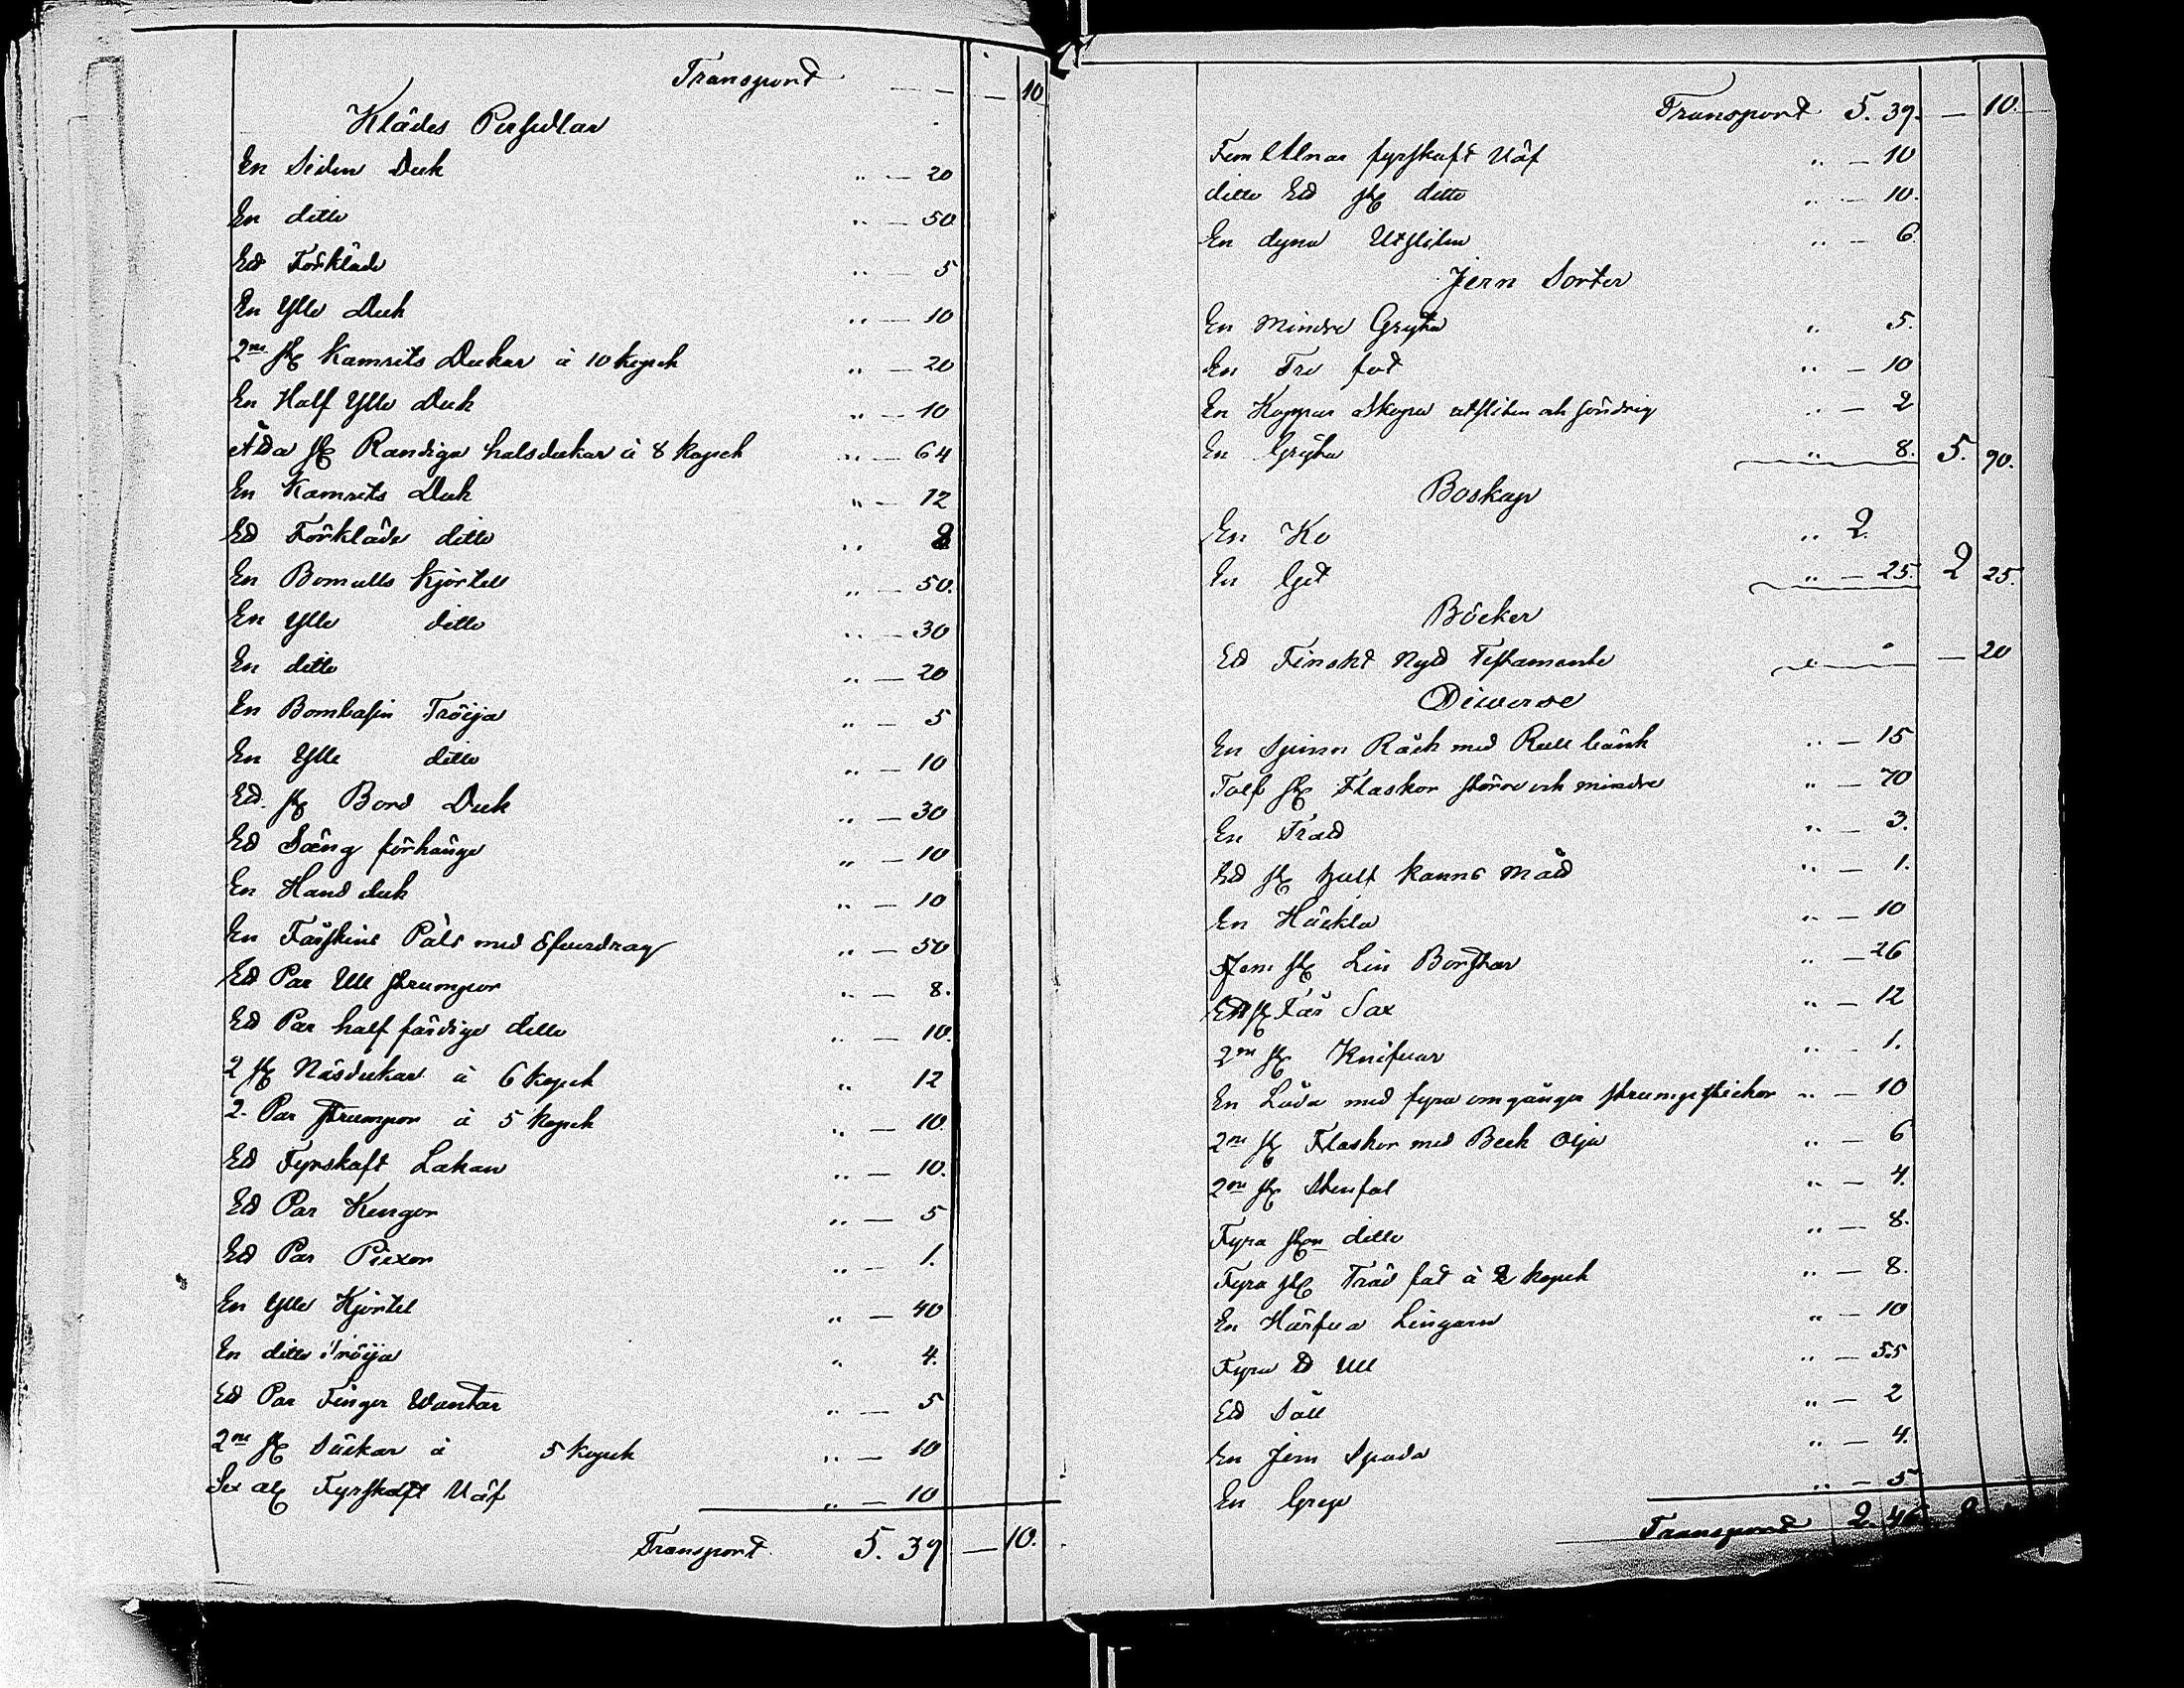 Transport — — — 10
Klädes Persedlar
En Siden Duk " — 20
En ditto " — 50
Ett Förkläde " — 5
En Ylle Duk " — 10
2ne st Kamrits Dukar à 10 kopek " — 20
En Half Ylle Duk " — 10
Åtta st Randiga halsdukar à 8 kopek " — 64
En Kamrits Duk " — 12
Ett Förkläde ditto " 8
En Bomulls Kjortel " — 50.
En Ylle ditto " — 30
En ditto " — 20
En Bombasin Tröija " — 5
En Ylle ditto " — 10
Ett st Bord Duk " — 30
Ett Säng förhänge " — 10
En Hand duk " — 10
En Fårskins Päls med Öfverdrag " — 50
Ett Par Ull strumpor " — 8.
Ett Par half färdiga ditto " — 10.
2 st Näsdukar à 6 kopek " 12
2. Par Strumpor à 5 kopek " — 10.
Ett Fyrskaft Lakan " — 10.
Ett Par Kengor " — 5
Ett Par Piexor " — 1.
En Ylle Kjortel " — 40
En ditto Tröija " 4.
Ett Par Finger Wantar " — 5
2ne st Säckar à 5 kopek " — 10
Sex al Fyrskaft Väf " — 10
Transport 5. 39 — 10.
Transport 5. 39. — 10.
Fem Alnar fyrskaft Väf " — 10
ditto Ett st ditto " — 10.
En dyna Utsliten " — 6
Jern Sorter
En Mindre Gryta " 5.
En Tre fot " — 10
En Koppar Skopa utsliten och söndrig " — 2
En Gryta " 8. 5. 90.
Boskap
En Ko " 2.
En Get " — 25. 2 25.
Böcker
Ett Finskt Nytt Testamente " — 20
Diverse
En Spinn Råck med Rull bänk " — 15
Tolf st Flaskor större och mindre " — 70
En Tratt " — 3.
Ett st half kanns mått " — 1.
En Häckla " — 10
Fem st Lin Borstar " — 26
Ett st Får Sax " — 12
2ne st Knifvar " — 1.
En Låda med fyra omgånger strumpstickor " — 10
2ne st Flaskor med Beck Olja " — 6
2ne st Stenfat " — 4.
Fyra st ditto " — 8.
Fyra st Träd fat à 2 kopek " — 8.
En Härfva Lingarn " — 10
Fyra ℔ Ull " — 55
Ett Såll " — 2
En Jern Spada " — 4.
En Grepe " — 5
Transport 2.